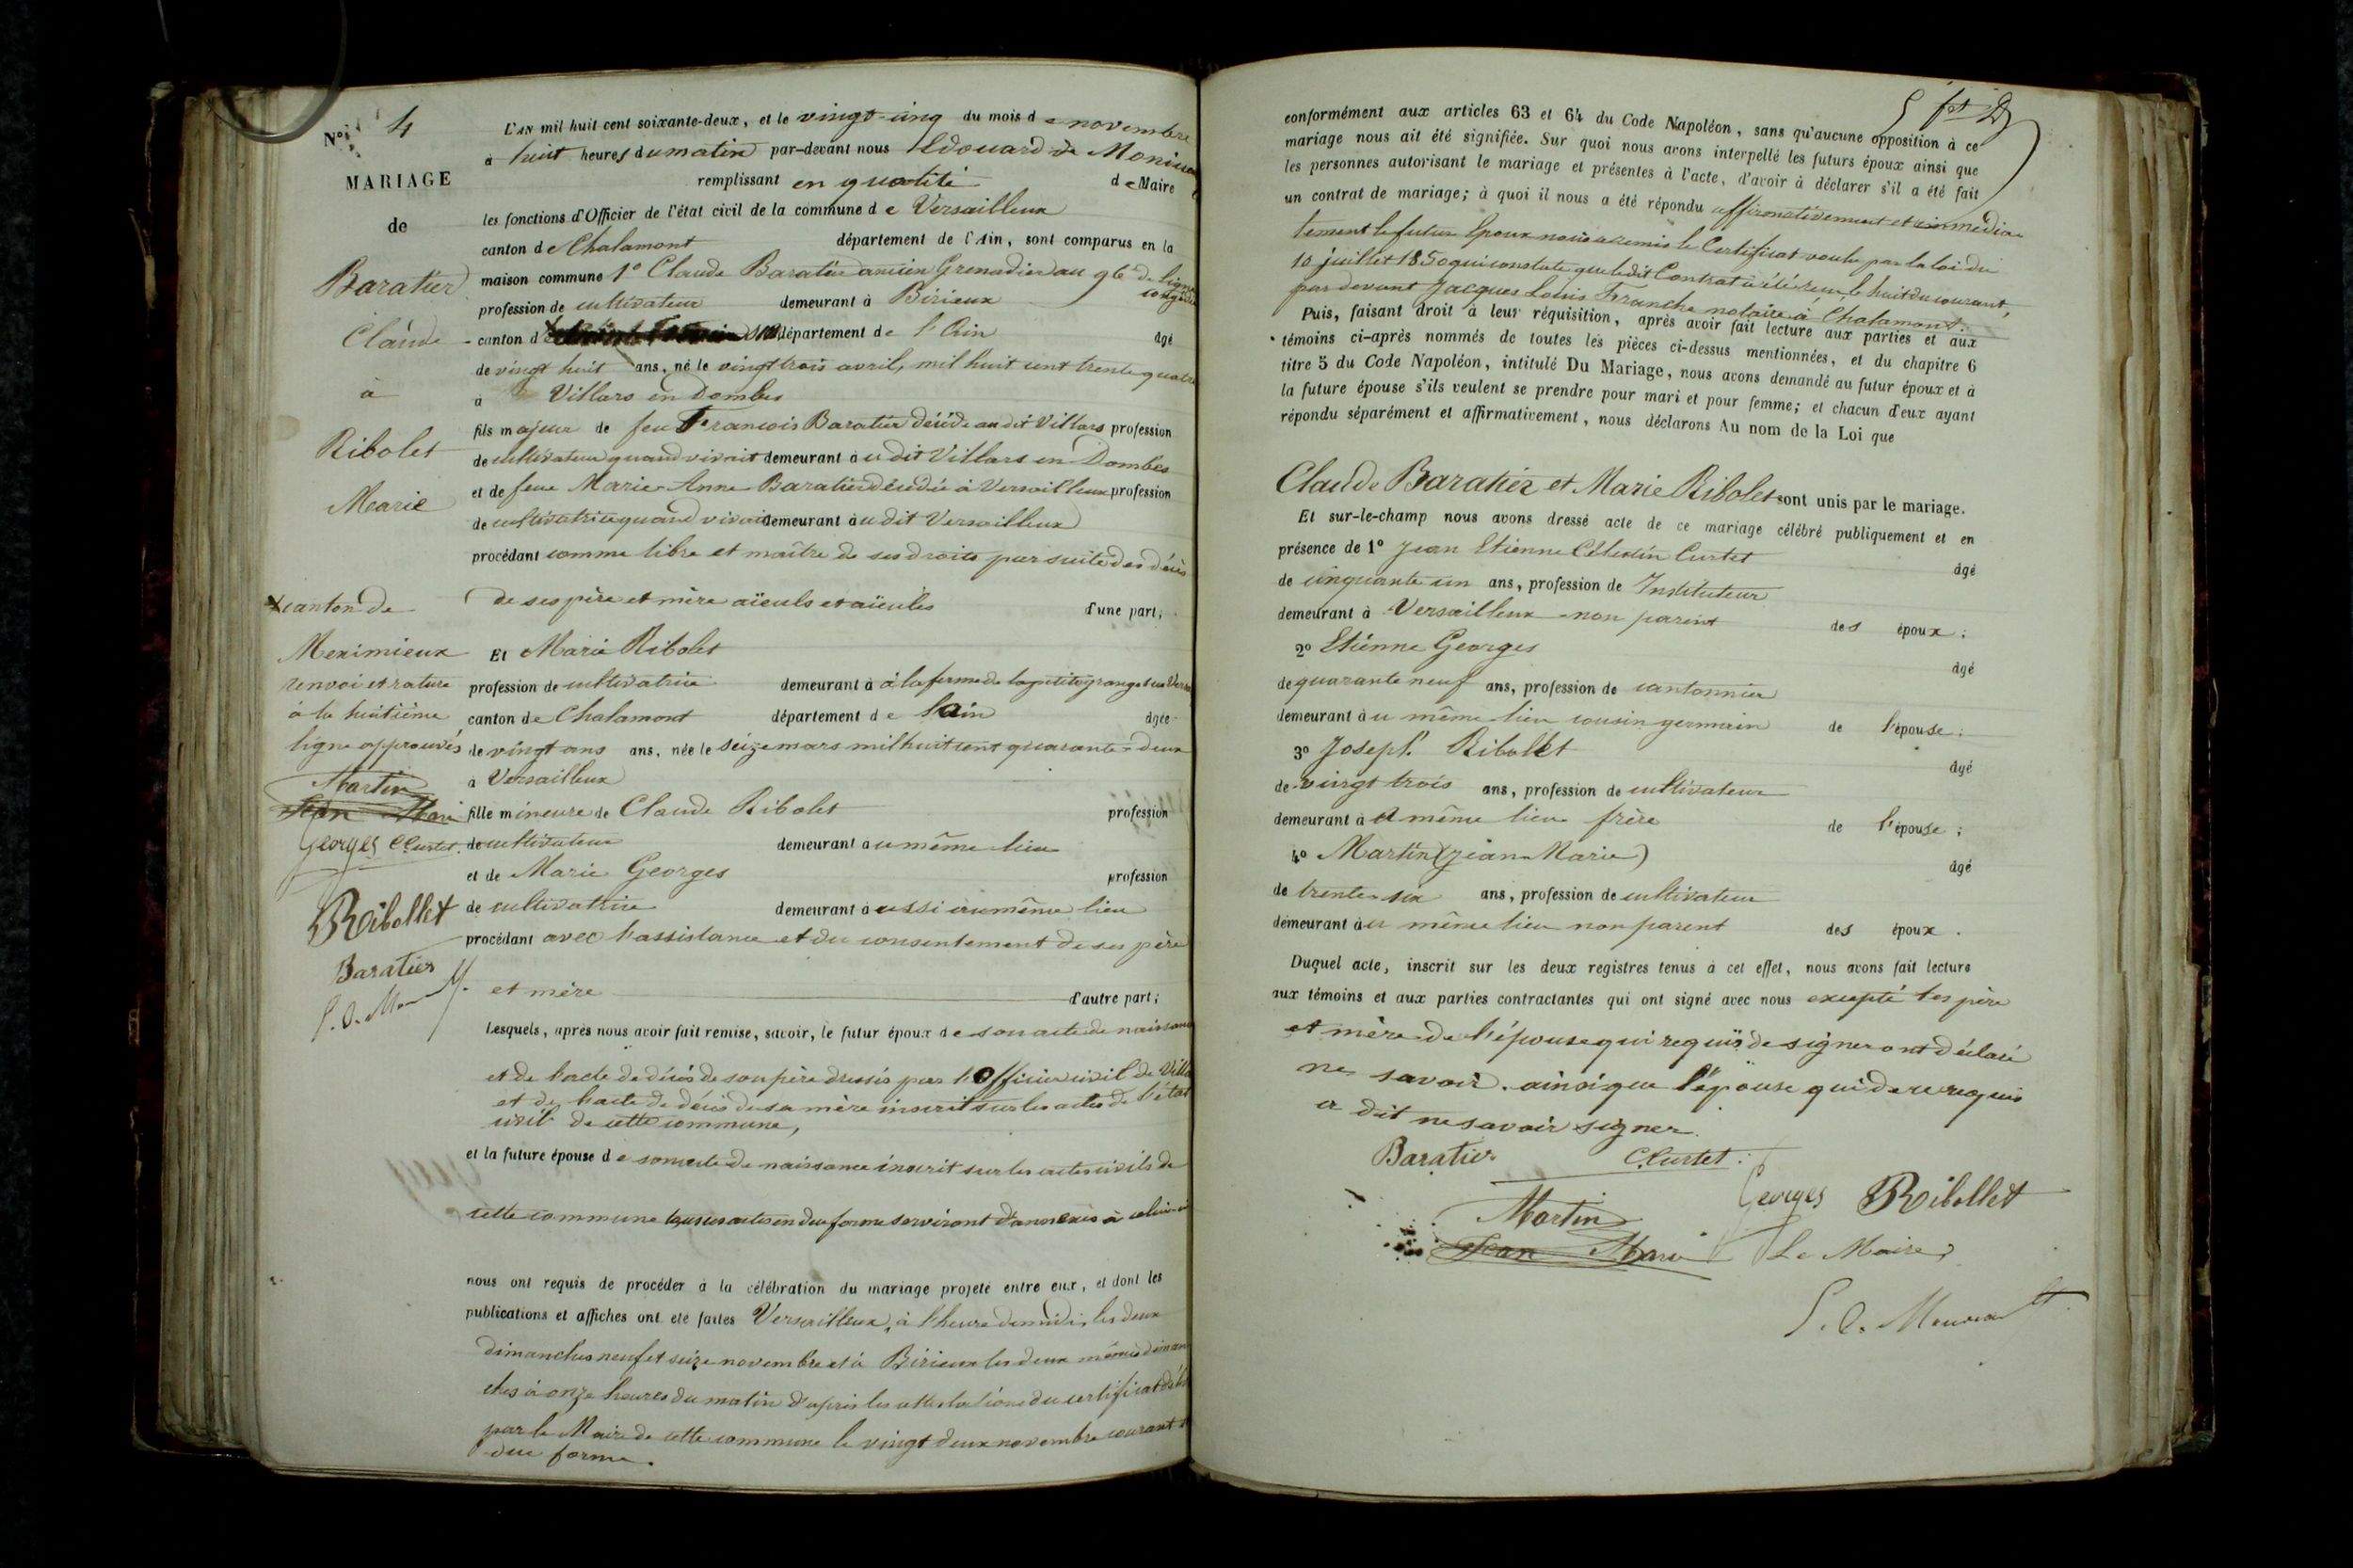 N° 4
MARIAGE
de
Baratier
Claude
à
Ribolet
Marie
L'AN mil huit cent soixante-deux, et le vingt-cinq du mois de novembre
à huit heures du matin par-devant nous Edouard de
remplissant en qualité de Maire
les fonctions d'Officier de l'état civil de la commune de Versailleux
canton de Chalamont département de l'Ain, sont comparus en la
maison commune 1° Claude Baratier ancien Grenadier au 96e de ligne
congédié
profession de cultivateur demeurant à Birieux
canton d département de l'Ain âgé
de vingt huit ans, né le vingt trois avril, mil huit cent trente quatre
à Villars en Dombes
fils majeur de feu Francois Baratier décédé au dit Villars profession
de cultivateur quand vivait demeurant au dit Villars en Dombes
et de feue Marie Anne Baratier décédée à Versailleux profession
de cultivatrice quand vivait demeurant au dit Versailleux
procédant comme libre et maître de ses droits par suite des décès
de ses père et mère aïeuls et aïeules d'une part;
x canton de
Meximieux
renvoi et rature
à la huitième
ligne approuvés
Martin
Jean Marie
Georges C Curtet.
Ribollet
Baratier
Et Marie Ribolet
profession de cultivatrice demeurant à à la ferme de la petite grange sur
canton de Chalamont département de l'ain âgée
de vingt ans ans, née le seize mars mil huit cent quarante-deux
à Versailleux
fille mineure de Claude Ribolet profession
de cultivateur demeurant au même lieu
et de Marie Georges profession
de cultivatrice demeurant aussi au même lieu
procédant avec l'assistance et du consentement de ses père
et mère d'autre part;
Lesquels, après nous avoir fait remise, savoir, le futur époux de son acte de naissance
et de l'acte de décès de son père dressés par l'Officier civil de
et de l'acte de décès de sa mère inscrit sur les actes de l'état
civil de cette commune,
et la future épouse de son acte de naissance inscrit sur les actes civils de
cette commune tous ces actes en due forme serviront d'annexes à celui-ci
nous ont requis de procéder à la célébration du mariage projeté entre eux, et dont les
publications et affiches ont été faites Versailleux, à l'heure de midi, les deux
dimanches neuf et seize novembre et à Birieux les deux mêmes diman
ches à onze heures du matin d'après les attestations du certificat
par le Maire de cette commune le vingt deux novembre courant
due forme.
conformément aux articles 63 et 64 du Code Napoléon, sans qu'aucune opposition à ce
mariage nous ait été signifiée. Sur quoi nous avons interpellé les futurs époux ainsi que
les personnes autorisant le mariage et présentes à l'acte, d'avoir à déclarer s'il a été fait
un contrat de mariage; à quoi il nous a été répondu affirmativement et immédia
tement le futur Epoux nous a remis le Certificat voulu par la loi du
10 juillet 1850 qui constate que le dit Contrat a été reçu le huit du courant,
par devant Jacques Louis Franche notaire à Chalamont.
Puis, faisant droit à leur réquisition, après avoir fait lecture aux parties et aux
témoins ci-après nommés de toutes les pièces ci-dessus mentionnées, et du chapitre 6
titre 5 du Code Napoléon, intitulé Du Mariage, nous avons demandé au futur époux et à
la future épouse s'ils veulent se prendre pour mari et pour femme; et chacun d'eux ayant
répondu séparément et affirmativement, nous déclarons Au nom de la Loi que
Claude Baratier et Marie Ribolet sont unis par le mariage.
Et sur-le-champ nous avons dressé acte de ce mariage célébré publiquement et en
présence de 1° Jean Etienne Célestin Curtet âgé
de cinquante un ans, profession de Instituteur
demeurant à Versailleux non parent des époux;
2° Etienne Georges âgé
de quarante neuf ans, profession de cantonnier
demeurant au même lieu cousin germain de l'épouse;
3° Joseph Ribollet âgé
de vingt trois ans, profession de cultivateur
demeurant au même lieu frère de l'épouse;
4° Martin (jean Marie) âgé
de trente six ans, profession de cultivateur
demeurant au même lieu non parent des époux.
Duquel acte, inscrit sur les deux registres tenus à cet effet, nous avons fait lecture
aux témoins et aux parties contractantes qui ont signé avec nous excepté les père
et mère de l'épouse qui requis de signer ont déclaré
ne savoir. ainsi que l'épouse qui de ce requis
a dit ne savoir signer.
Baratier C. Curtet
Martin Georges Ribollet
Jean Marie Le Maire